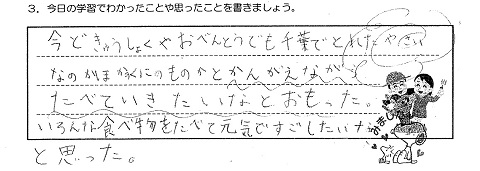 3. 今日の学習でわかったことや思ったことを書きましょう。
今どきゅうしょくやおべんとうでも千葉でとれたやさい
なのかほかくにのものかとかんがえながら
たべていきたいなとおもった。
いろんな食べ物をたべて元気ですごしたいな
と思った。